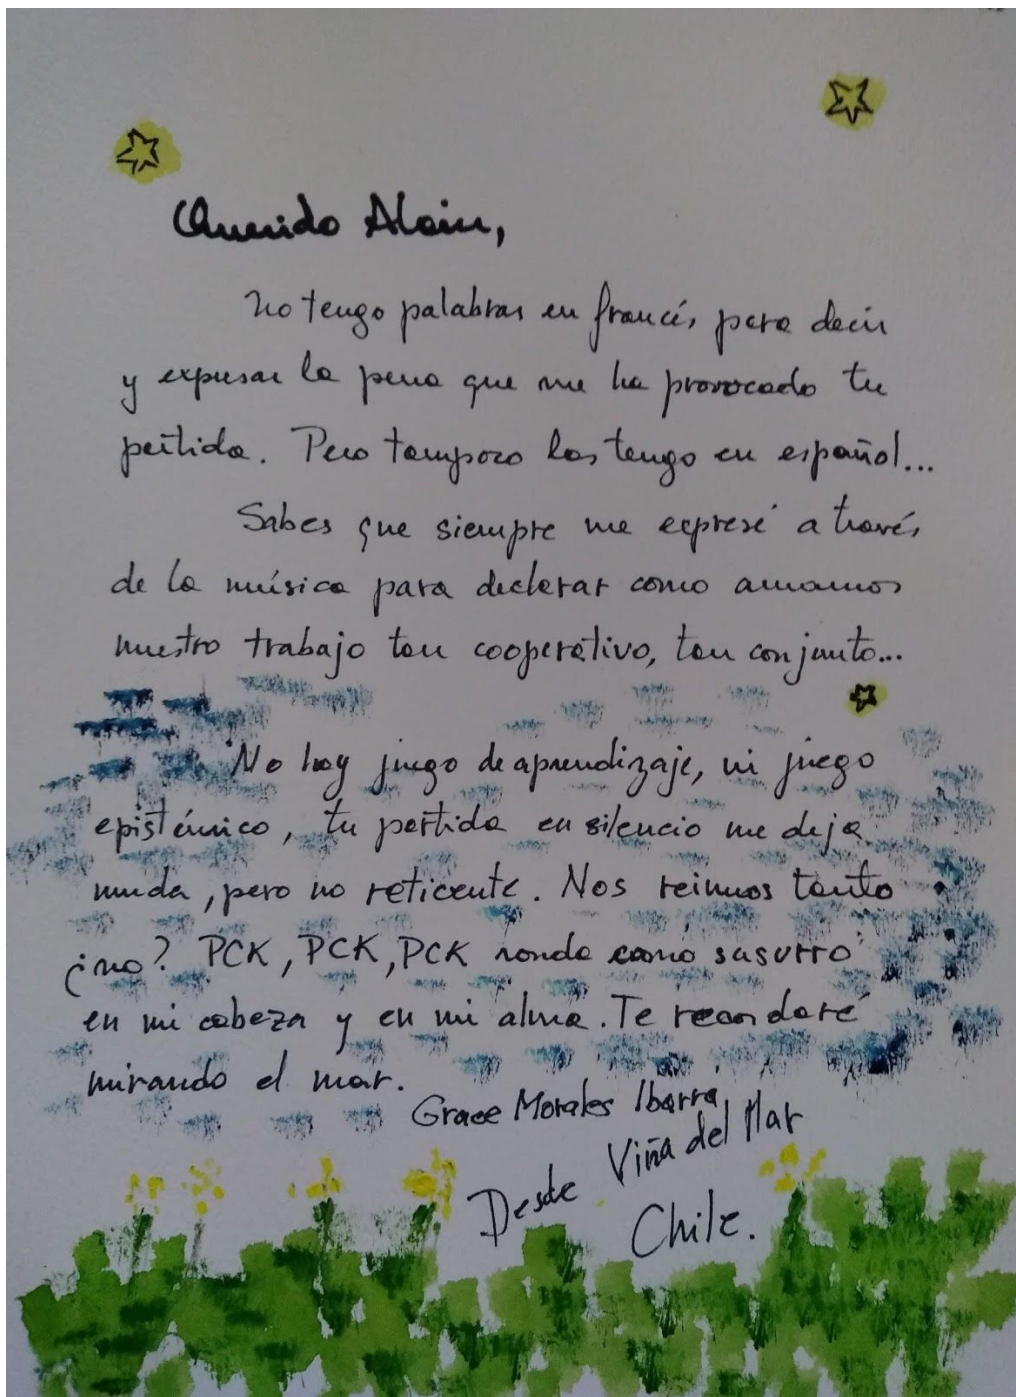 Querido Alain,
No tengo palabras en francés para decir
y expresar la pena que me ha provocado tu
partida. Pero tampoco las tengo en español...
Sabes que siempre me expresé a través
de la música para declarar como amamos
nuestro trabajo tan cooperativo, tan conjunto...
No hay juego de aprendizaje, ni juego
epistémico, tu partida en silencio me deja
muda, pero no reticente. Nos reimos tanto
¿no? PCK, PCK, PCK ronda como susurro
en mi cabeza y en mi alma. Te recordaré
mirando el mar.
Grace Morales Ibarra,
Desde Viña del Mar
Chile.